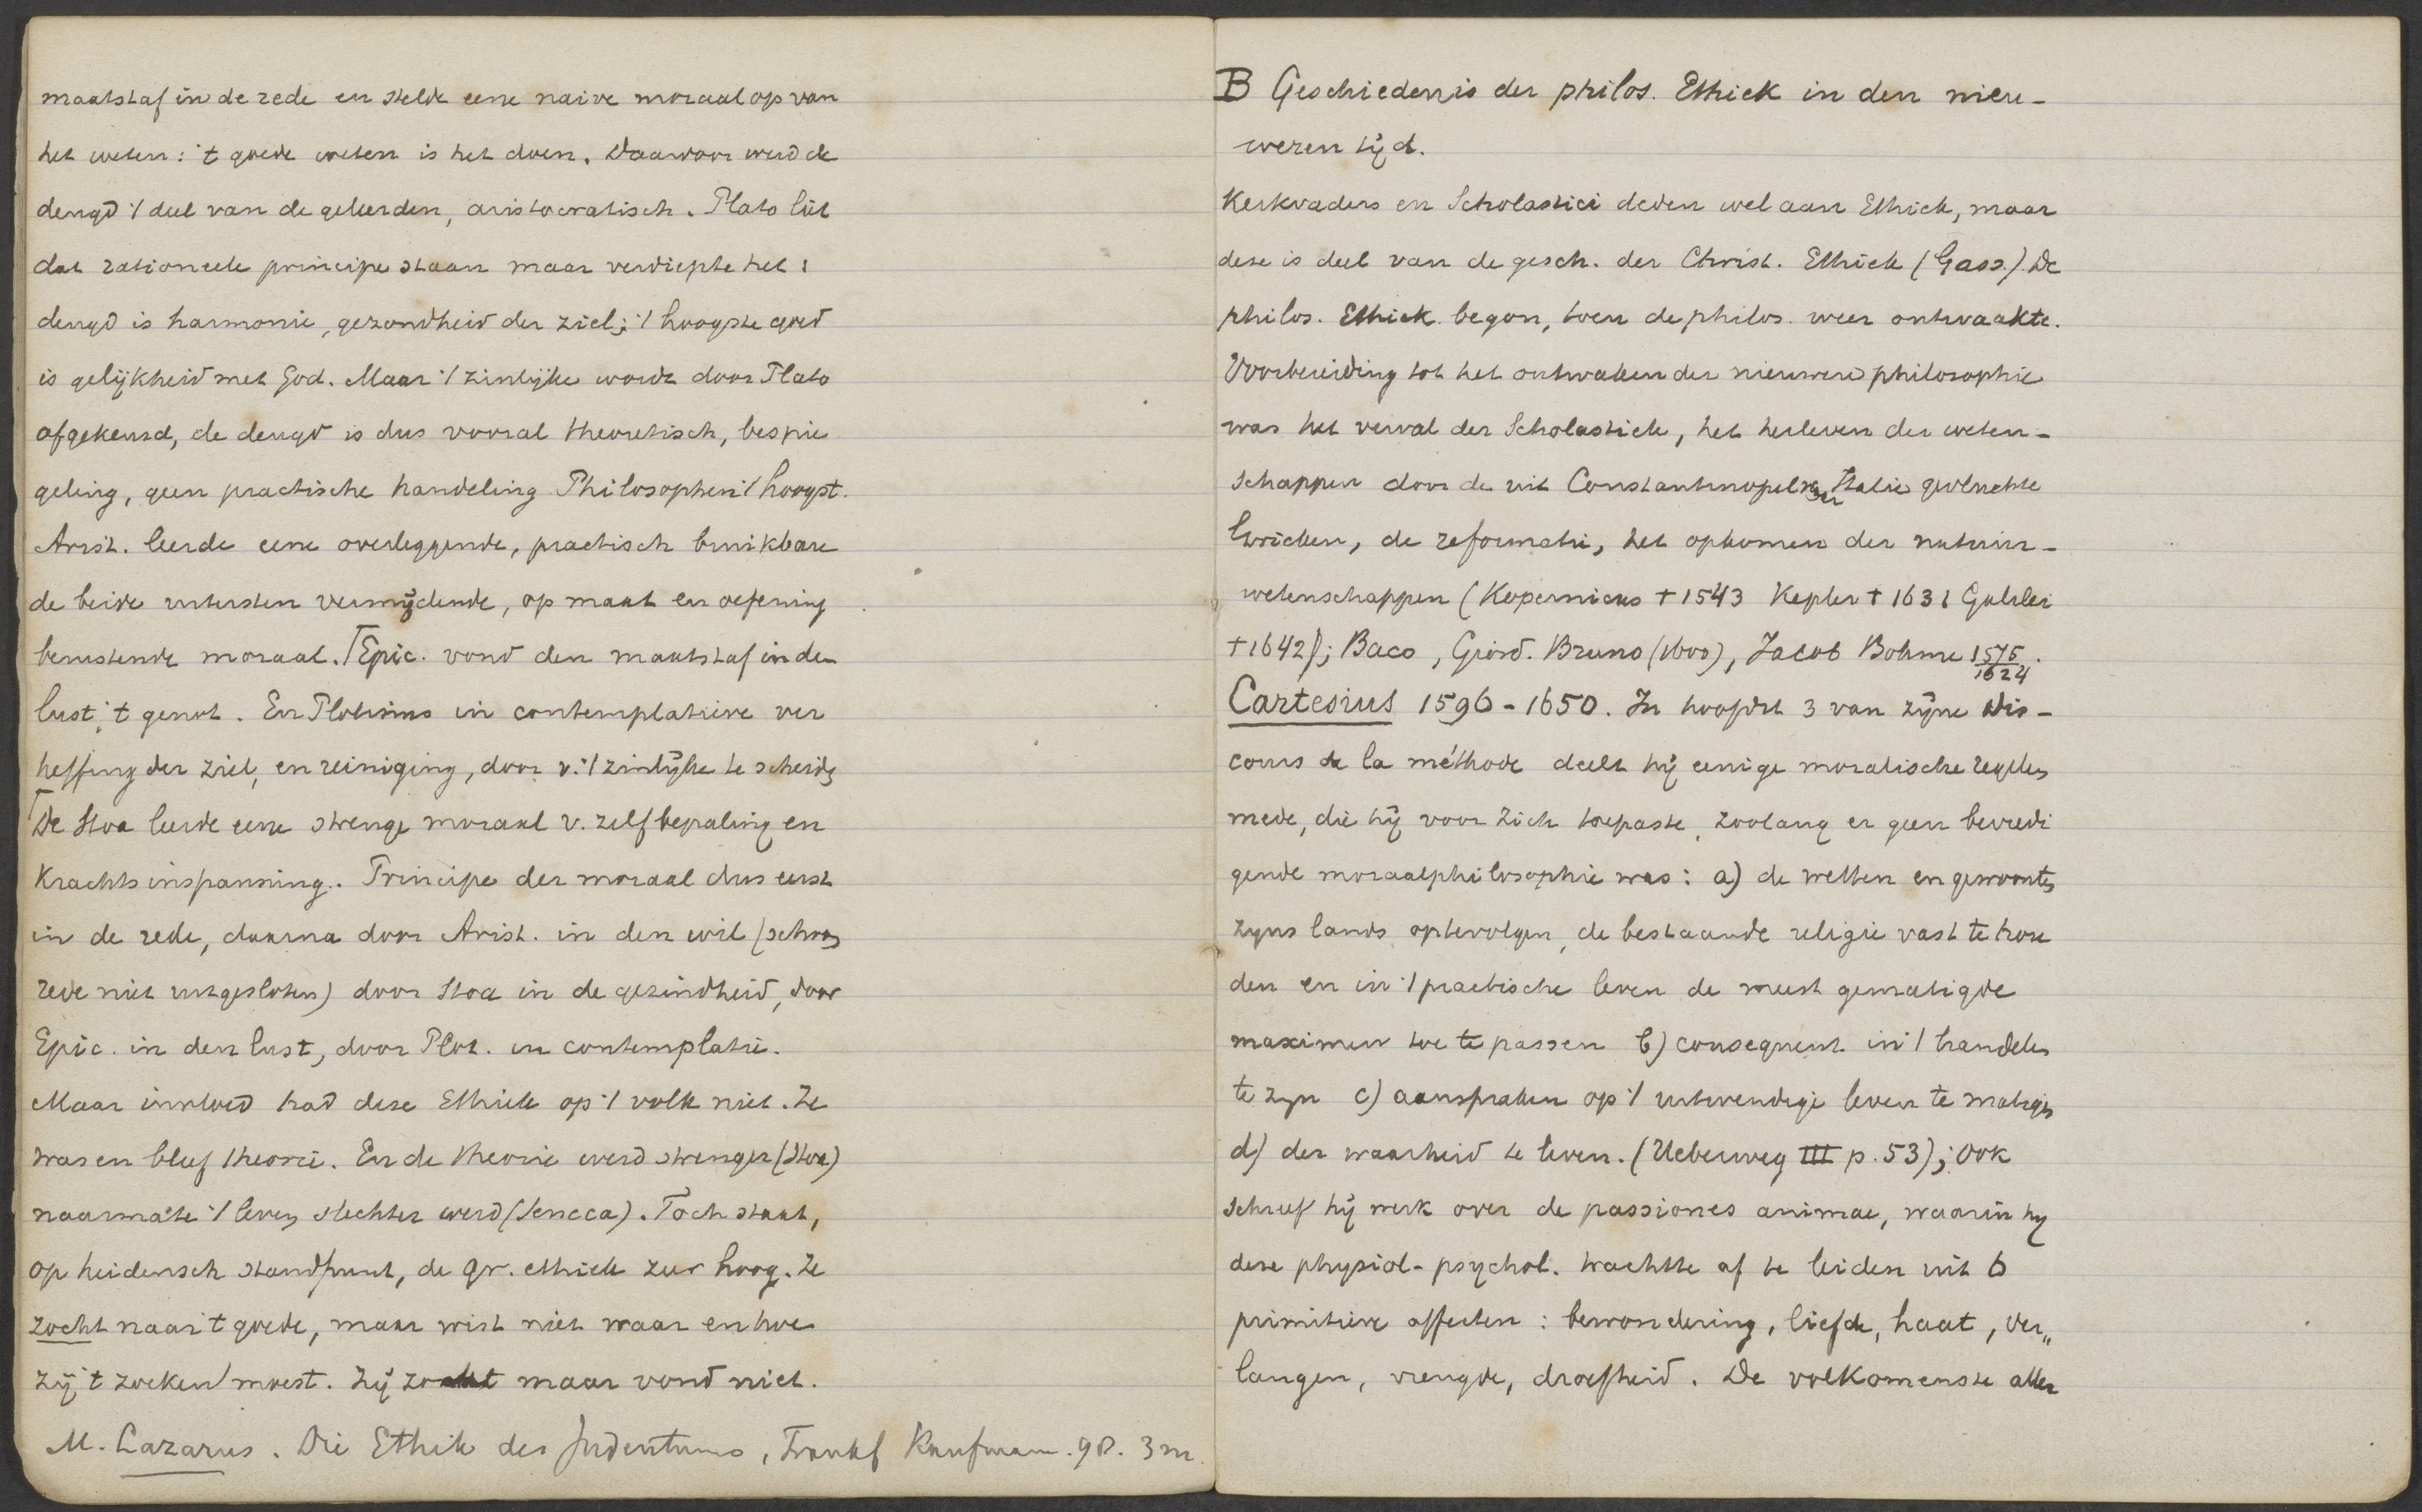 maatstaf in de rede en stelde eene naive moraal op van
het weten: 't goede weten is het doen. Daarvoor werd de
deugd 't deel van de geleerden, aristocratisch. Plato liet
dat rationeele principe staan maar verdiepte het:
deugd is harmonie, gezondheid der ziel; 't hoogste goed
is gelijkheid met God. Maar 't zinlijke wordt door Plato
afgekeurd, de deugd is dus vooral theoretisch, bespie
geling, geen practische handeling. Philosophen 't hoogst.
Arist. leerde eene overleggende, practisch bruikbare
de beide uitersten vermijdende, op maat en oefening
berustende moraal. Epic. vond den maatstaf in den
lust, 't genot. En Plotinus in contemplatieve ver
heffing der ziel, en reiniging, door v. 't zinlijke te scheiden
De Stoa leerde eene strenge moraal v. zelfbepaling en
krachtsinspanning. Principe der moraal dus eerst
in de rede, daarna door Arist. in den wil (schoon
rede niet uitgesloten) door Stoa in de gezindheid, door
Epic. in den lust, door Plot. in contemplatie.
Maar invloed had deze Ethiek op 't volk niet. Ze
was en bleef theorie. En de theorie werd strenger (Stoa)
naarmate 't leven slechter werd (Seneca). Toch staat,
op heidensch standpunt, de gr. ethiek zeer hoog. Ze
zocht naar 't goede, maar wist niet waar en hoe
zij 't zoeken moest. Zij zocht maar vond niet.
M. Lazarus. Die Ethik des Judentums, Frankf Kaufmann. 98. 3 m.
B Geschiedenis der philos. Ethiek in den nieu-
weren tijd.
Kerkvaders en Scholastici deden wel aan Ethiek, maar
deze is deel van de gesch. der Christ. Ethiek (Gass.) De
philos. Ethiek begon, toen de philos. weer ontwaakte.
Voorbereiding tot het ontwaken der nieuwere philosophie
was het verval der Scholastiek, het herleven der weten-
schappen door de uit Constantinopel naar Italie gevluchte
Grieken, de reformatie, het opkomen der natuur-
wetenschappen (Kopernicus † 1543 Kepler † 1631 Galilei
† 1642); Baco, Giord. Bruno (1600), Jacob Bohme 1575/1624.
Cartesius 1596-1650. In hoofdst 3 van zijne Dis-
cours de la méthode deelt hij eenige moralische regelen
mede, die hij voor zich toepaste, zoolang er geen bevredi
gende moraalphilosophie was: a) de wetten en gewoonten
zijns lands optevolgen, de bestaande religie vast te hou
den en in 't practische leven de meest gematigde
maximen toe te passen b) consequent in 't handelen
te zijn c) aanspraken op 't uitwendige leven te matigen
d) der waarheid te leven. (Ueberweg III p. 53); Ook
schreef hij werk over de passiones animae, waarin hij
deze physiol-psychol. trachtte af te leiden uit 6
primitieve affecten: bewondering, liefde, haat, ver„
langen, vreugde, droefheid. De volkomenste aller